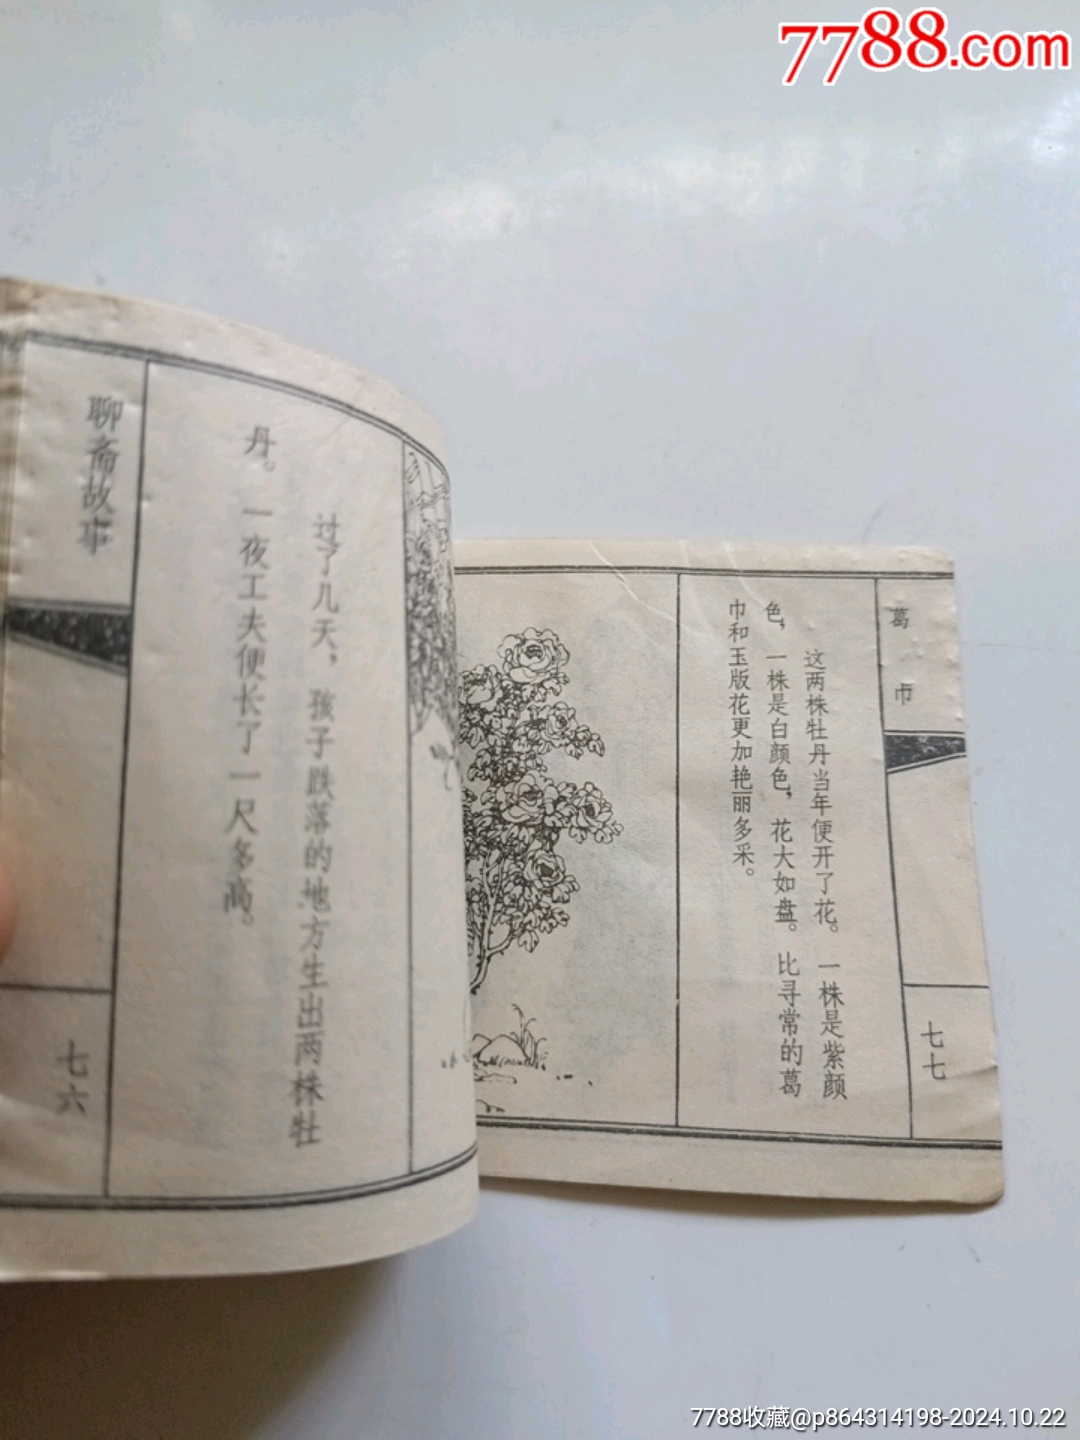 7788.com
聊斋故事
过了几天，孩子跌落的地方生出两株牡
丹。一夜工夫便长了一尺多高。
七六
葛巾
这两株牡丹当年便开了花。一株是紫颜
色，一株是白颜色，花大如盘。比寻常的葛
巾和玉版花更加艳丽多采。
七七
7788收藏@p864314198-2024.10.22